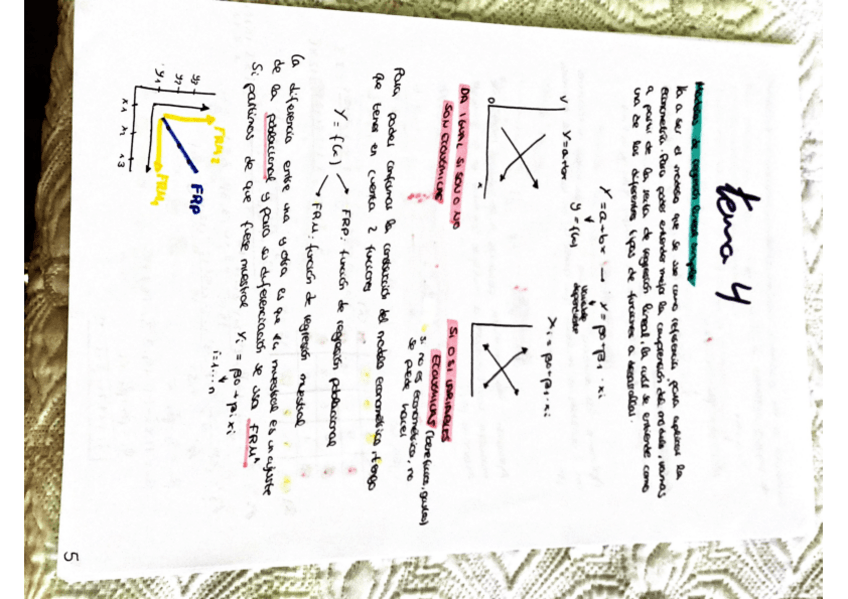 tema 4
Modelos de regresión lineal simple
Va a ser el modelo que se usa como referencia para explicar la
econometría. Para poder entender mejor la comprensión del modelo, vamos
a partir de la recta de regresión lineal, la cual se entiende como
una de las diferentes tipos de funciones a desarrollar.
Y = a + bx — Y = β0 + β1 · xi
y = f(x)
variable
dependiente
Y Y = a + bx
0 x
Yi = β0 + β1 · xi
DA IGUAL SI SON O NO
SON ECONÓMICAS
SI O SI VARIABLES
ECONÓMICAS (beneficios, gastos)
si no es econométrico, no
se puede hacer
Para poder confirmar la construcción del modelo econométrico tengo
que tener en cuenta 2 funciones
Y = f(x)
FRP: función de regresión poblacional
FRM: función de regresión muestral
La diferencia entre una y otra es que la muestral es un ajuste
de la poblacional y para su diferenciación se usa FRM^
Si partimos de que fuese muestral Yi = β0 + β1 · xi
i = 1 ... n
y3
y2
y1
FRM2
FRP
FRM1
x1 x3
5